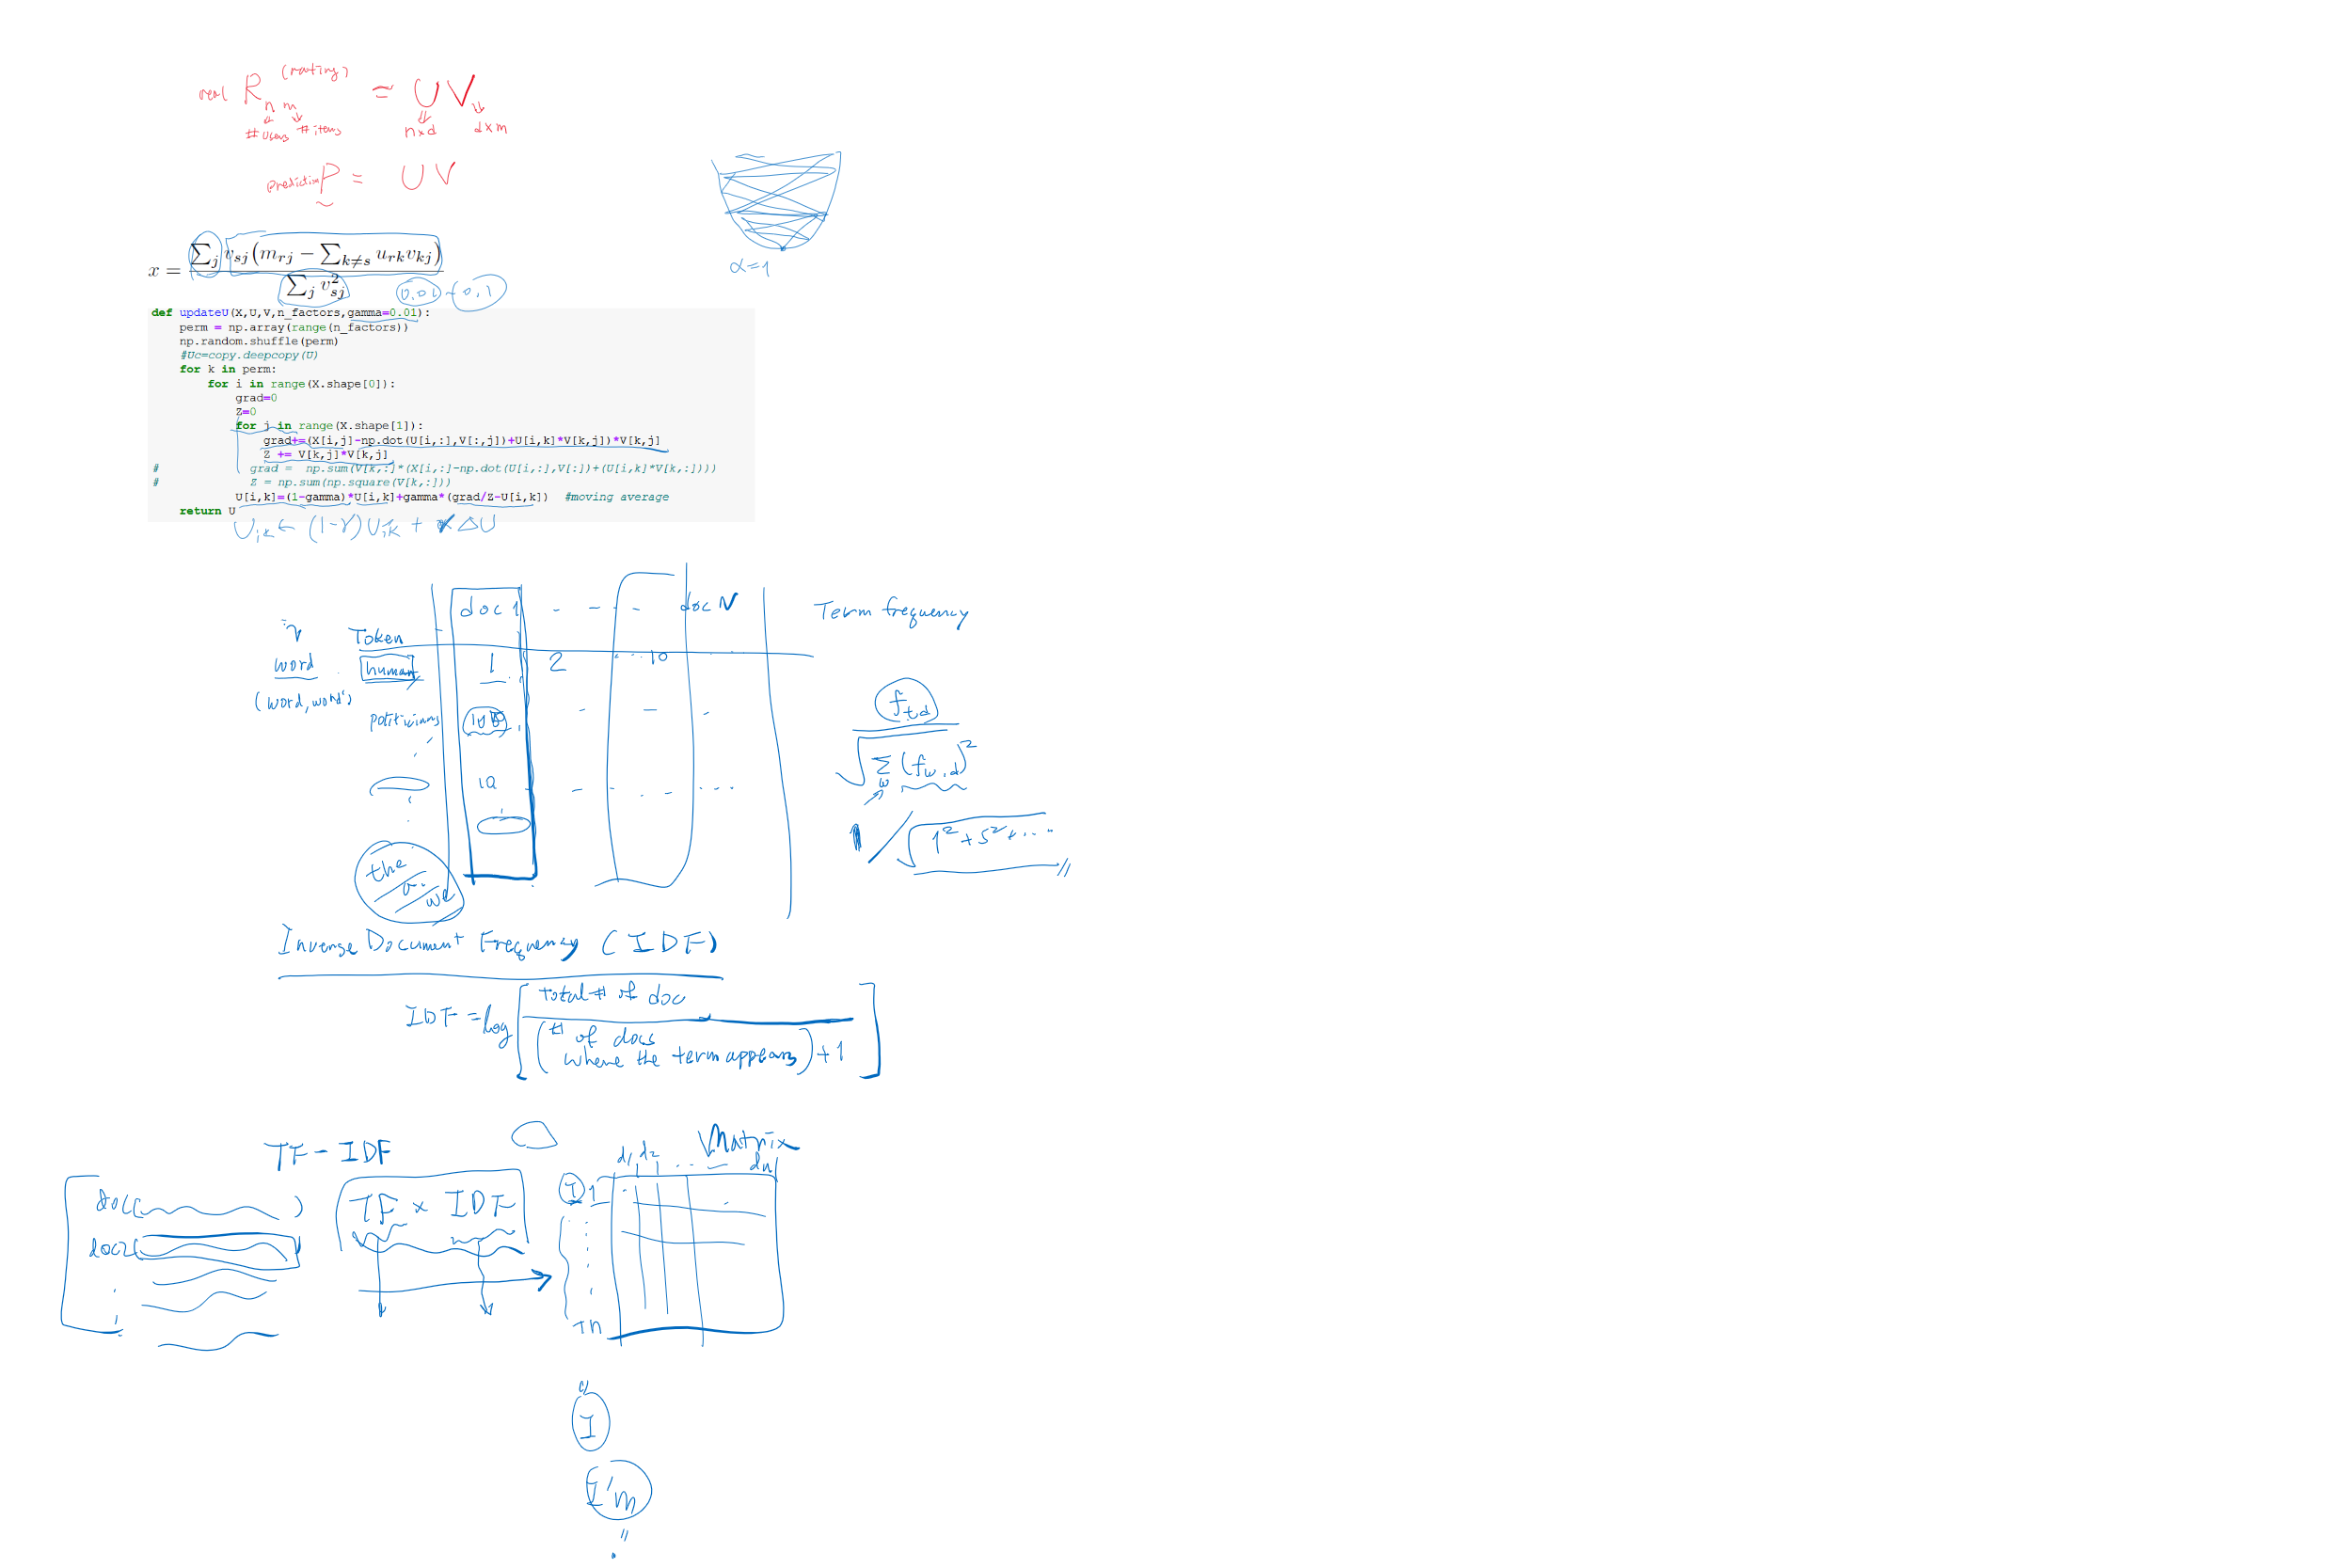 real R n m (rating) = U V
# users # items n×d d×m
prediction P = U V
x = ∑j vsj (mrj − ∑k≠s urk vkj) / ∑j v²sj
α=1
0.01 ~ 0.1
def updateU(X,U,V,n_factors,gamma=0.01):
    perm = np.array(range(n_factors))
    np.random.shuffle(perm)
    #Uc=copy.deepcopy(U)
    for k in perm:
        for i in range(X.shape[0]):
            grad=0
            Z=0
            for j in range(X.shape[1]):
                grad+=(X[i,j]-np.dot(U[i,:],V[:,j])+U[i,k]*V[k,j])*V[k,j]
                Z += V[k,j]*V[k,j]
#             grad =  np.sum(V[k,:]*(X[i,:]-np.dot(U[i,:],V[:])+(U[i,k]*V[k,:])))
#             Z = np.sum(np.square(V[k,:]))
            U[i,k]=(1-gamma)*U[i,k]+gamma*(grad/Z-U[i,k])  #moving average
    return U
Uik ← (1-γ) Uik + γ ΔU
doc 1 - - - - doc N
Term frequency
Token
word human 1 2 ... 10 ...
(word, word')
politicians 100 - - -
10 - - - - - ...
the
a
we
ftd / √ ∑w (fw,d)²
1 / √ 1² + 5² + ....
Inverse Document Frequency (IDF)
IDF = log [ total # of doc / (# of docs where the term appears) + 1 ]
TF - IDF
Matrix
d1 d2 .. - dn
doc1( )
doc2(
TF × IDF
I 1
Tn
"
I
I'm
"